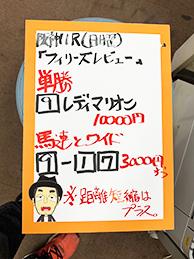 阪神11R(日曜)
『フィリーズレビュー』
単勝
1 レディマリオン
10000円
馬連とワイド
9-17 3000円ずつ
※距離短縮は
プラス。